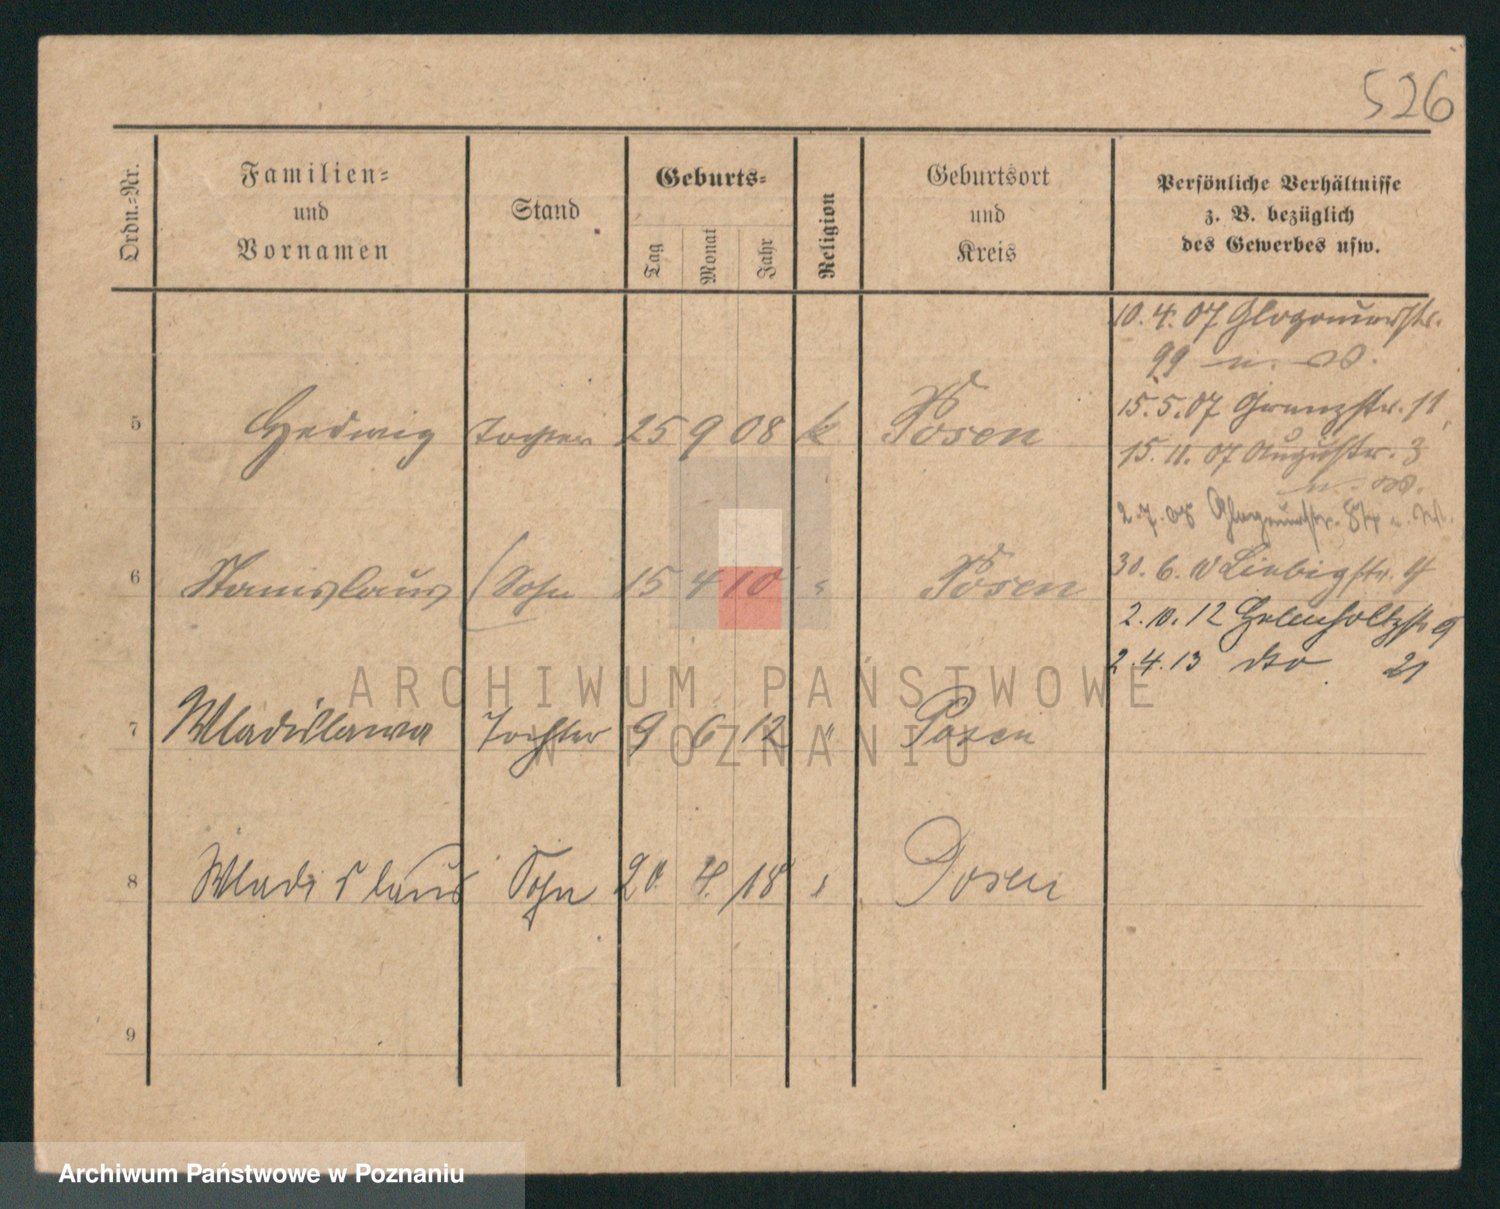 526
Ordn.-Nr.
Familien-
und
Vornamen
Stand
Geburts-
Tag
Monat
Jahr
Religion
Geburtsort
und
Kreis
Persönliche Verhältnisse
z. B. bezüglich
des Gewerbes usw.
10.4.07 Glogauerstr.
99
15.5.07 Grenzstr. 11
15.11.07 Auguststr. 3
2.7.08 Glogauerstr.
30.6.10 Liebigstr.
2.10.12 Helmholtzstr 9
2.4.13 dto 21
5 Hedwig Tochter 25 9 08 k Posen
6 Stanislaus Sohn 15 4 10 " Posen
7 Wladislawa Tochter 9 6 12 " Posen
8 Wladislaus Sohn 20. 4. 18 " Posen
9
ARCHIWUM PAŃSTWOWE
W POZNANIU
Archiwum Państwowe w Poznaniu